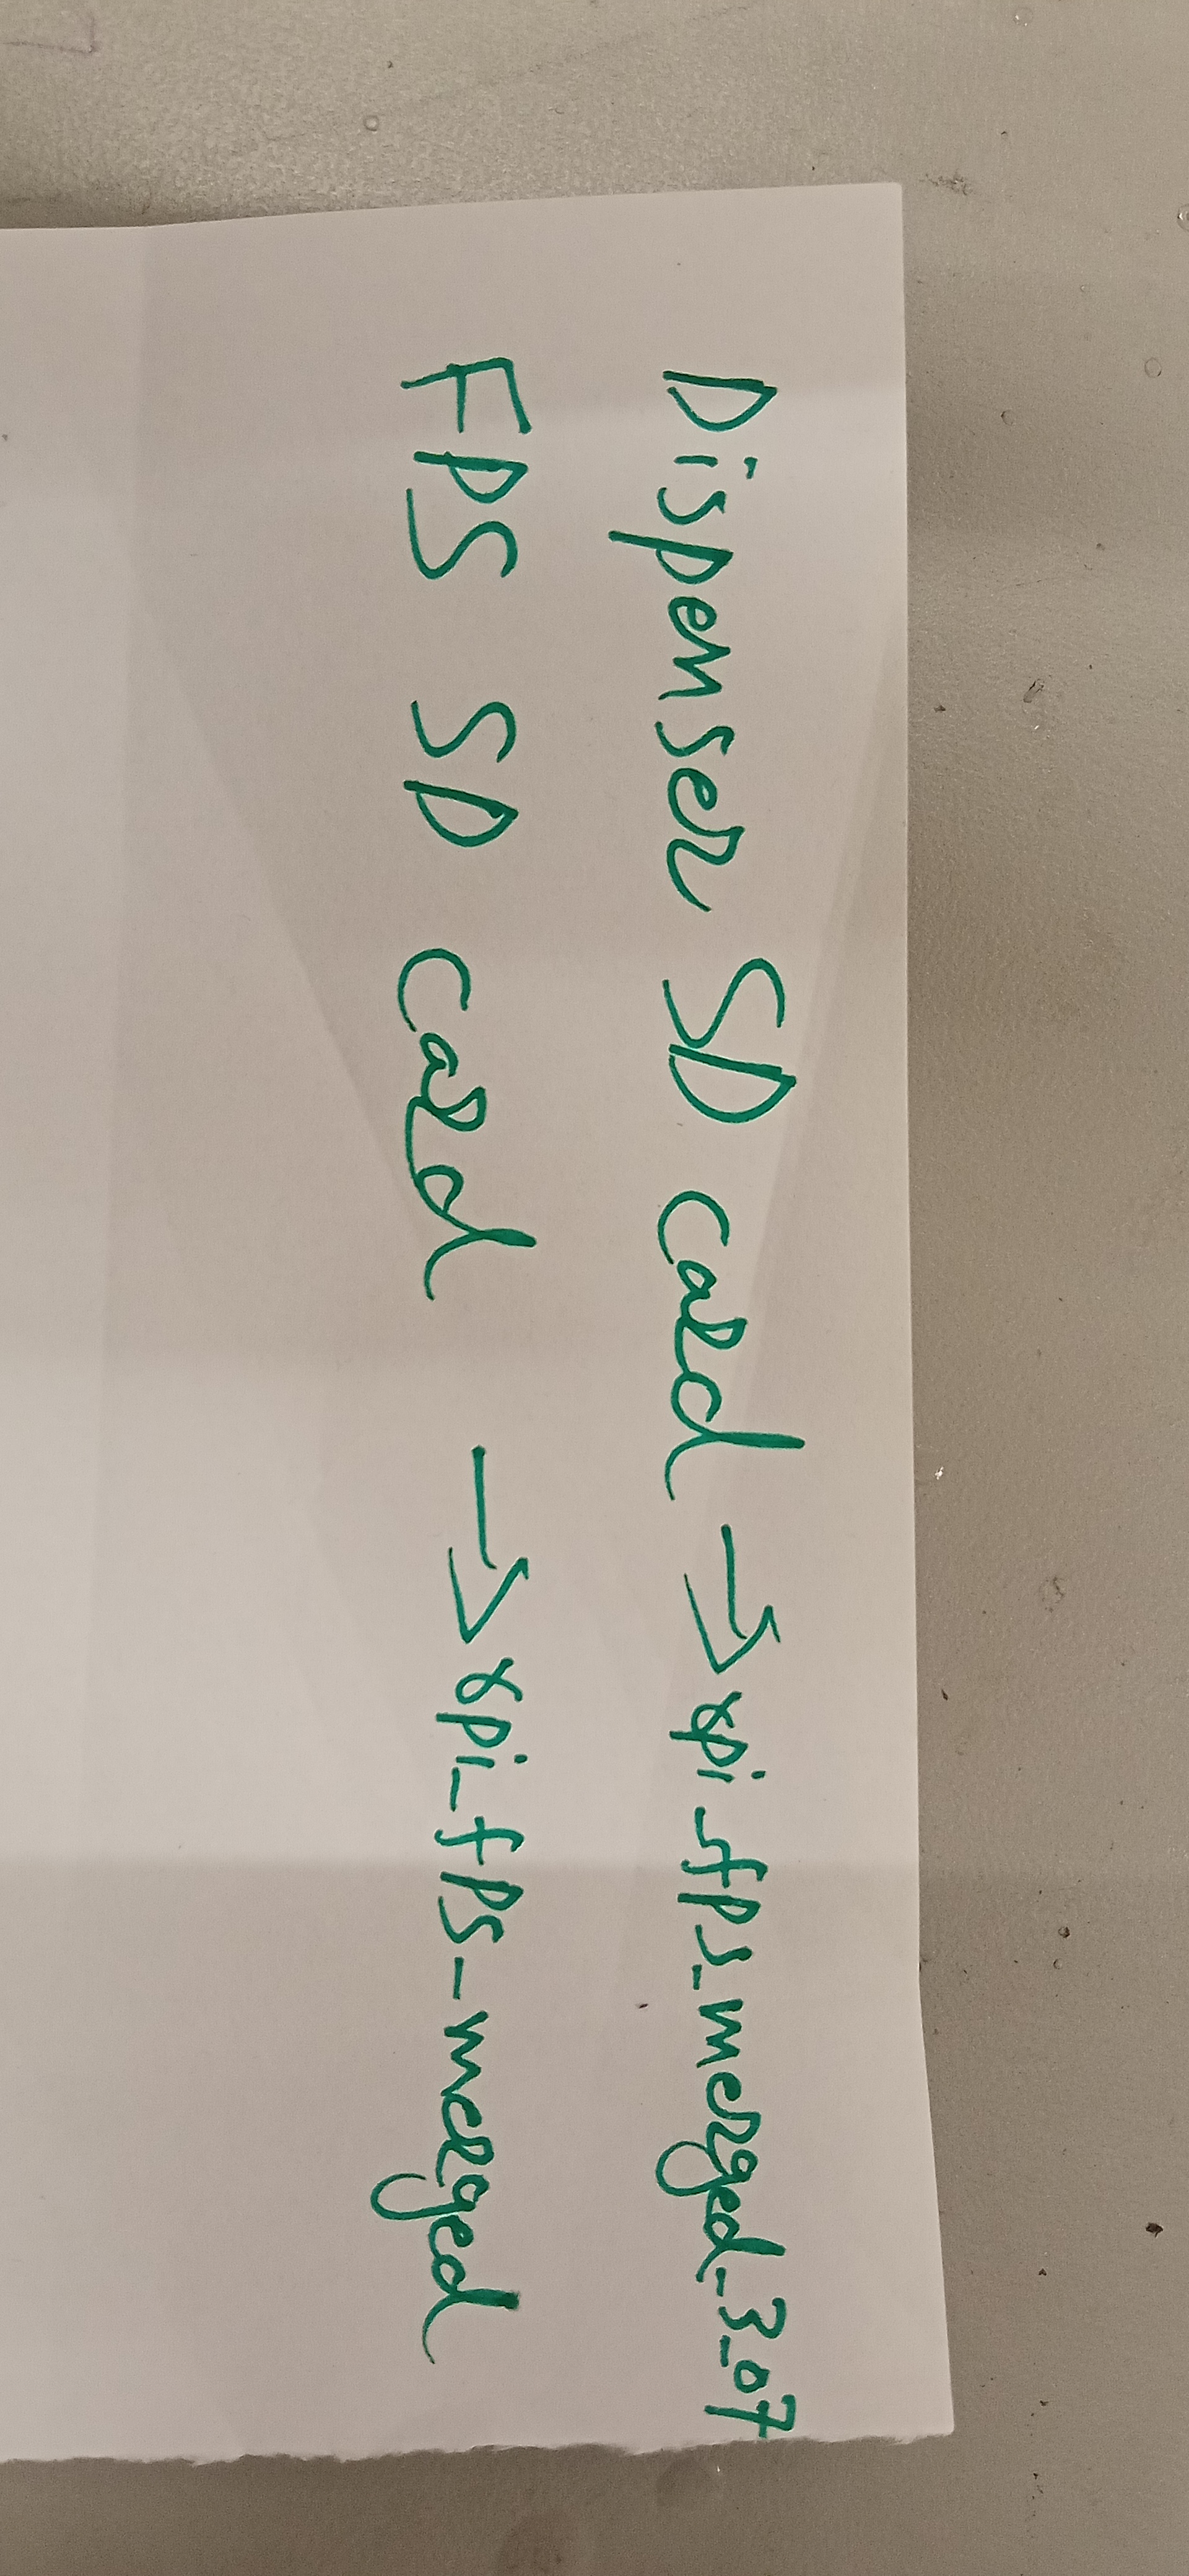 Dispenser SD card → rpi_fps_merged_3_07
FPS SD card → rpi_fps_merged